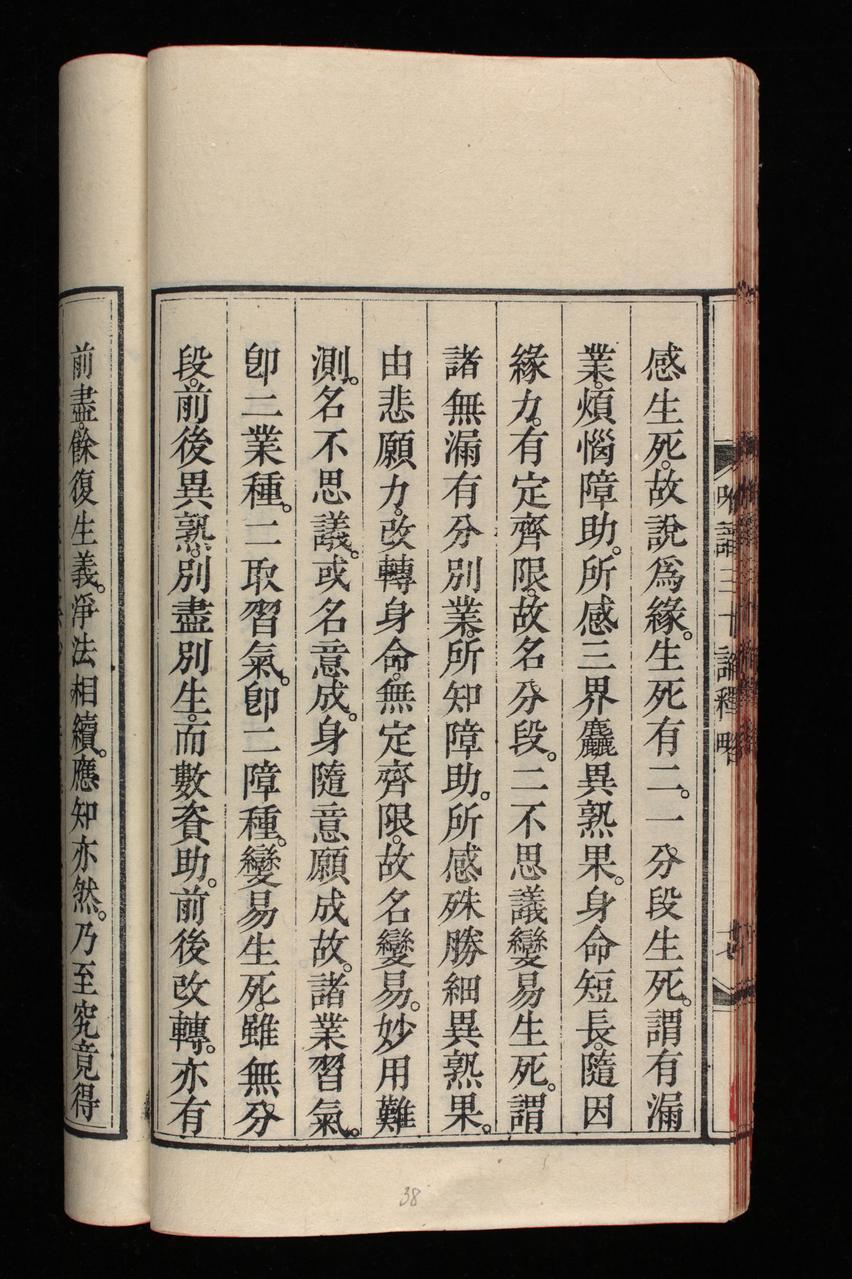 感生死。故說爲緣。生死有二。一分段生死。謂有漏
業。煩惱障助。所感三界麤異熟果。身命短長。隨因
緣力。有定齊限。故名分段。二不思議變易生死。謂
諸無漏有分別業。所知障助。所感殊勝細異熟果。
由悲願力。改轉身命。無定齊限。故名變易。妙用難
測。名不思議。或名意成。身隨意願成故。諸業習氣。
卽二業種。二取習氣。卽二障種。變易生死。雖無分
段。前後異熟。別盡別生。而數資助。前後改轉。亦有
前盡。餘復生義。淨法相續。應知亦然。乃至究竟得
三十論釋略
38